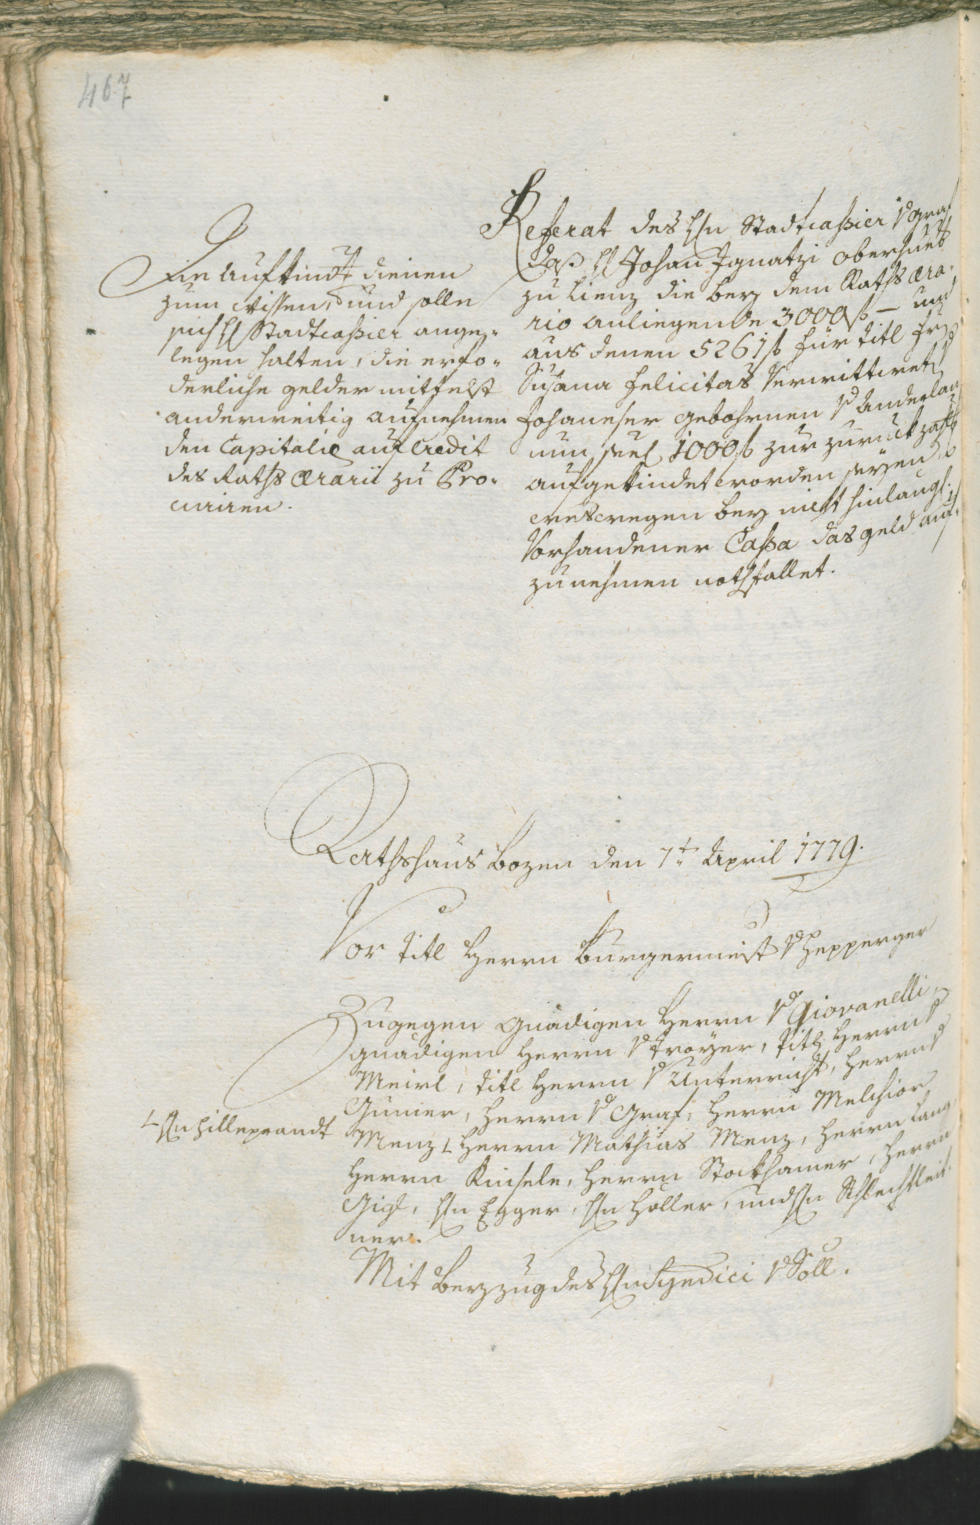 467
Referat des Hn Stadtcaßier v Graf
daß H Johan Ignatzi Oberhueb
zu Lienz die bey dem Raths Æra-
rio anliegende 3000 f – und
aus denen 5261 f für titl Fr
Susana Felicitas Verwittweten
Johaneser gebohrnen v Anderlan
nun 1000 f zur zuruckzahl
aufgekindet worden seyen
weswegen bey nicht hinlängl:
Vorhandener Caßa das geld auf-
zunehmen nothfallet.
Die Aufkindt dienen
zum Wissen, und solle
sich H Stadtcaßier ange-
legen halten, die erfo-
derliche gelder mittelst
anderweitig aufnehmen
den Capitalie auf Credit
des Raths Ærarii zu Pro-
curiren.
Rathshaus Bozen den 7t April 1779.
Vor titl Herrn Burgermeist v Zepperger
Zugegen gnädigen Herrn v Giovanelli,
gnädigen Herrn v Troyer, titl Herrn v
Meirl, titl Herrn v Unterricht, Herrn v
Gumer, Herrn v Graf, Herrn Melchior
Menz, Herrn Mathias Menz, Herrn Lang
Hn Hilleprandt
Herrn Kinsele, Herrn Stockhamer, Herrn
Gigl, Hn Egger, Hn Holler, und Hn Schlechtleit-
ner.
Mit Beyzug des Hn Syndici v Söll.